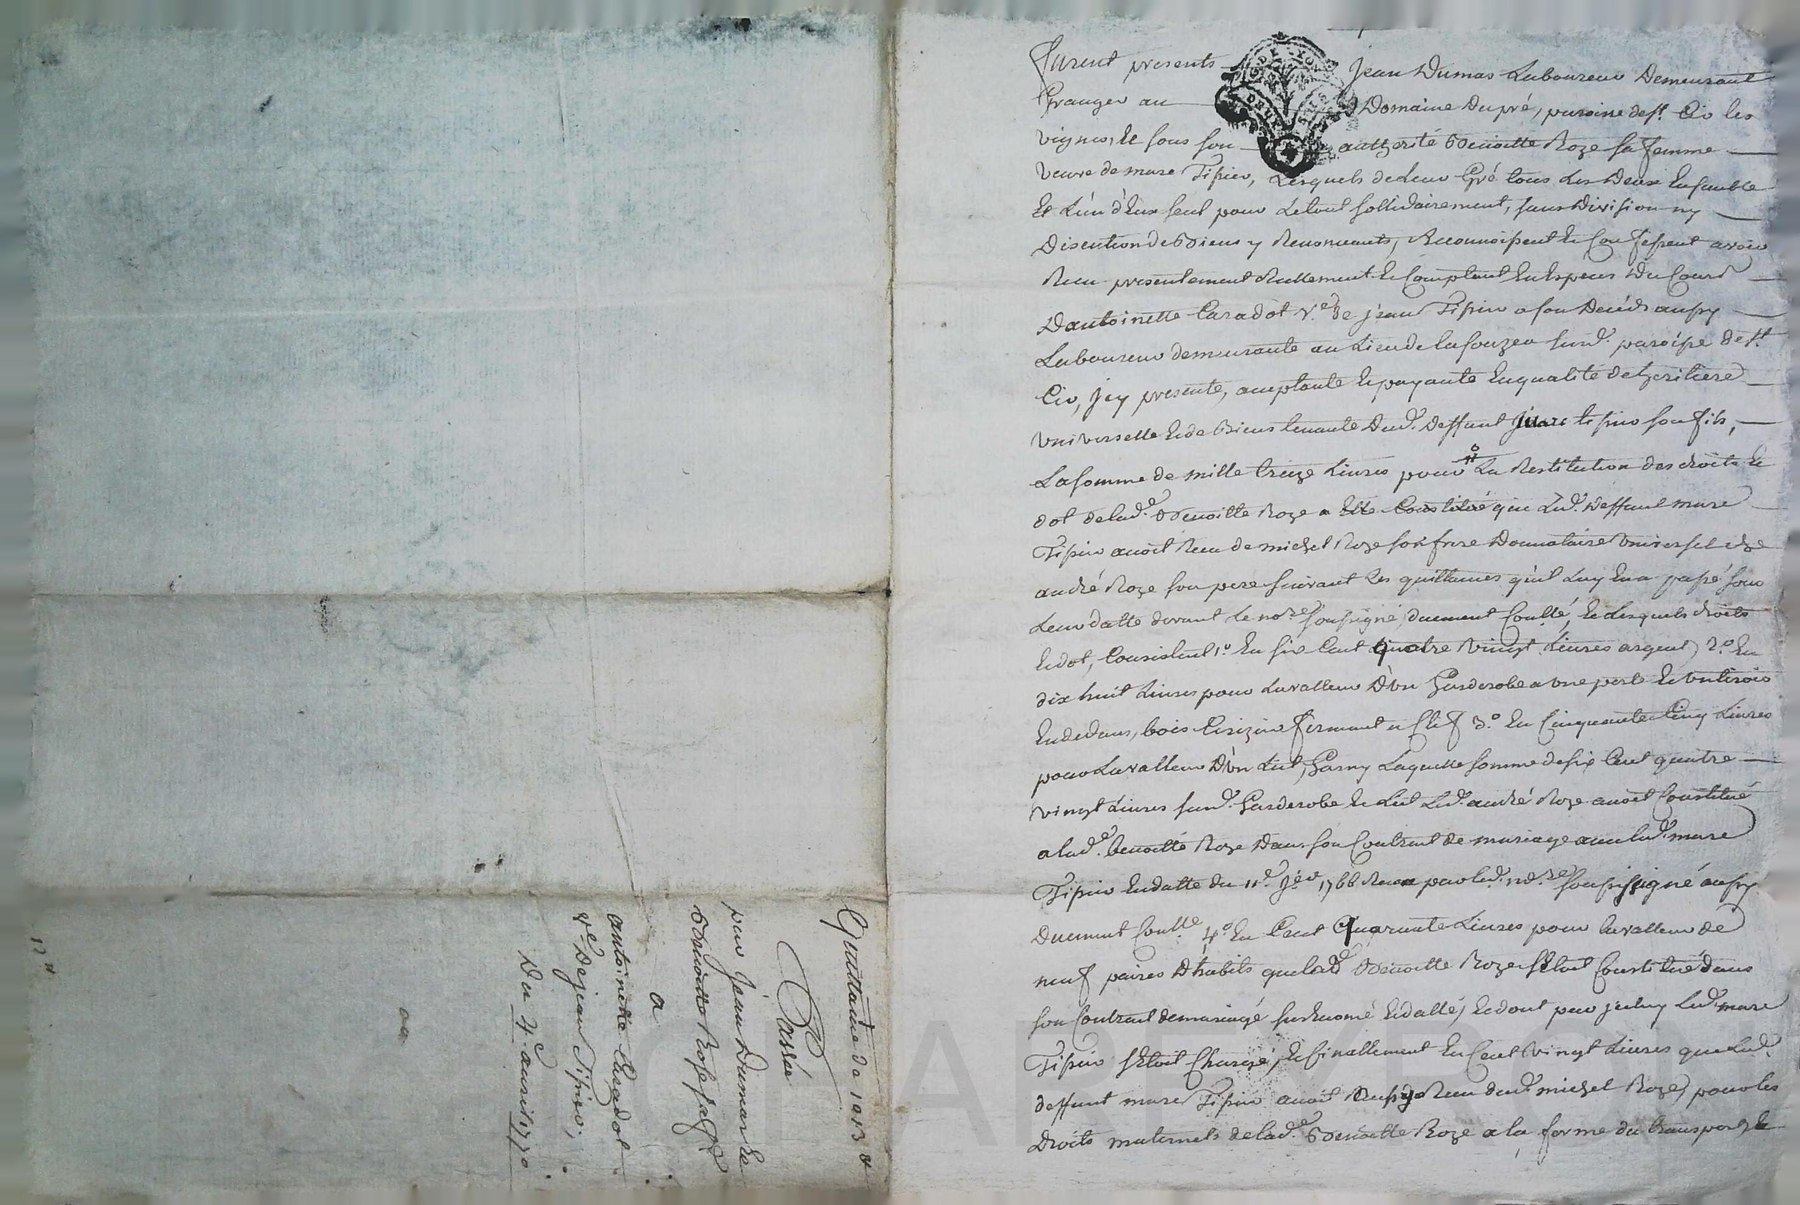 Furent presents Jean Dumas Laboureur Demeurant
Granger au Domaine Dupré, paroisse de st. Cir les
vignes, Et sous son authorité Benoitte Roze sa femme
veuve de marc Tipier, Lesquels de Leur Gré tous Les Deux Ensemble
Et L'un d'Eux seul pour Le tout sollidairement, sans Division ny
Discution de Biens y Renonceants, Reconnoissent Et Confessent avoir
Receu presentement Reellement Et Comptant En Especes Du Cours
D'antoinette Caradot Ve. de jean Tipier a son Decéds aussy
Laboureur demeurante au Lieu de la fouzea susd. paroisse de st.
Cir, jcy presente, acceptante Et payante En qualité de heritiere
universelle Et de Biens tenante Dud. Deffunt marc tipier son fils,
La somme de mille treize Livres pour La Restitution des droits Et
dot de lad.e Benoitte Roze a Elle Constitué que Led. Deffunt marc
Tipier avoit Receu de michel Roze son frere Donnataire Universel de
andré Roze son pere suivant Les quittances qu'il Luy En a passé sous
Leur datte devant Le no.re soussigné, duement Con.llé, Et Lesquels droits
Et dot, Consistent 1.o En six Cent quatre vingt Livres argent, 2.o En
dix huit Livres pour La valleur D'un Garderobe a une porte Et un tiroir
En dedans, bois Cerizier fermant a Clef 3.o En Cinquante Cinq Livres
pour La valleur D'un Lit, Garny Laquelle somme de six Cent quatre
vingt Livres susd. Garderobe Et Lit Led. andré Roze avoit Constitué
a lad.e benoitte Roze Dans son Contrat de mariage avec led. marc
Tipier En datte du 11.e 1766 Receu par led. no.re soussigné aussy
Duement Con.llé 4.o En Cent Quarante Livres pour La valleur de
neuf paires D'habits que lad.e Benoitte Roze s'Etoit Constitué dans
son Contrat de mariage susEnomé Et datté, Et dont par jceluy Led. marc
Tipier s'Etoit Chargé, Et finallement En Cent vingt Livres que Led.
deffunt marc Tipier avoit aussy Receu dud. michel Roze, pour les
Droits maternels de lad.e Benoitte Roze a la forme du transport Et
Quittance de 1013 #
Passée
par Jean Dumas Et
Benoitte Rose sa f.e
a
antoinette Caradot
v.e De jean Tipier,
Du 4.e avril 1770